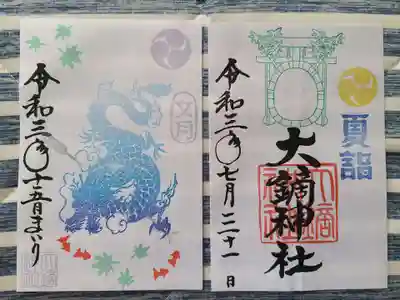 夏詣
大鏑神社
令和三年七月二十一日
文月
令和三年十五日まいり